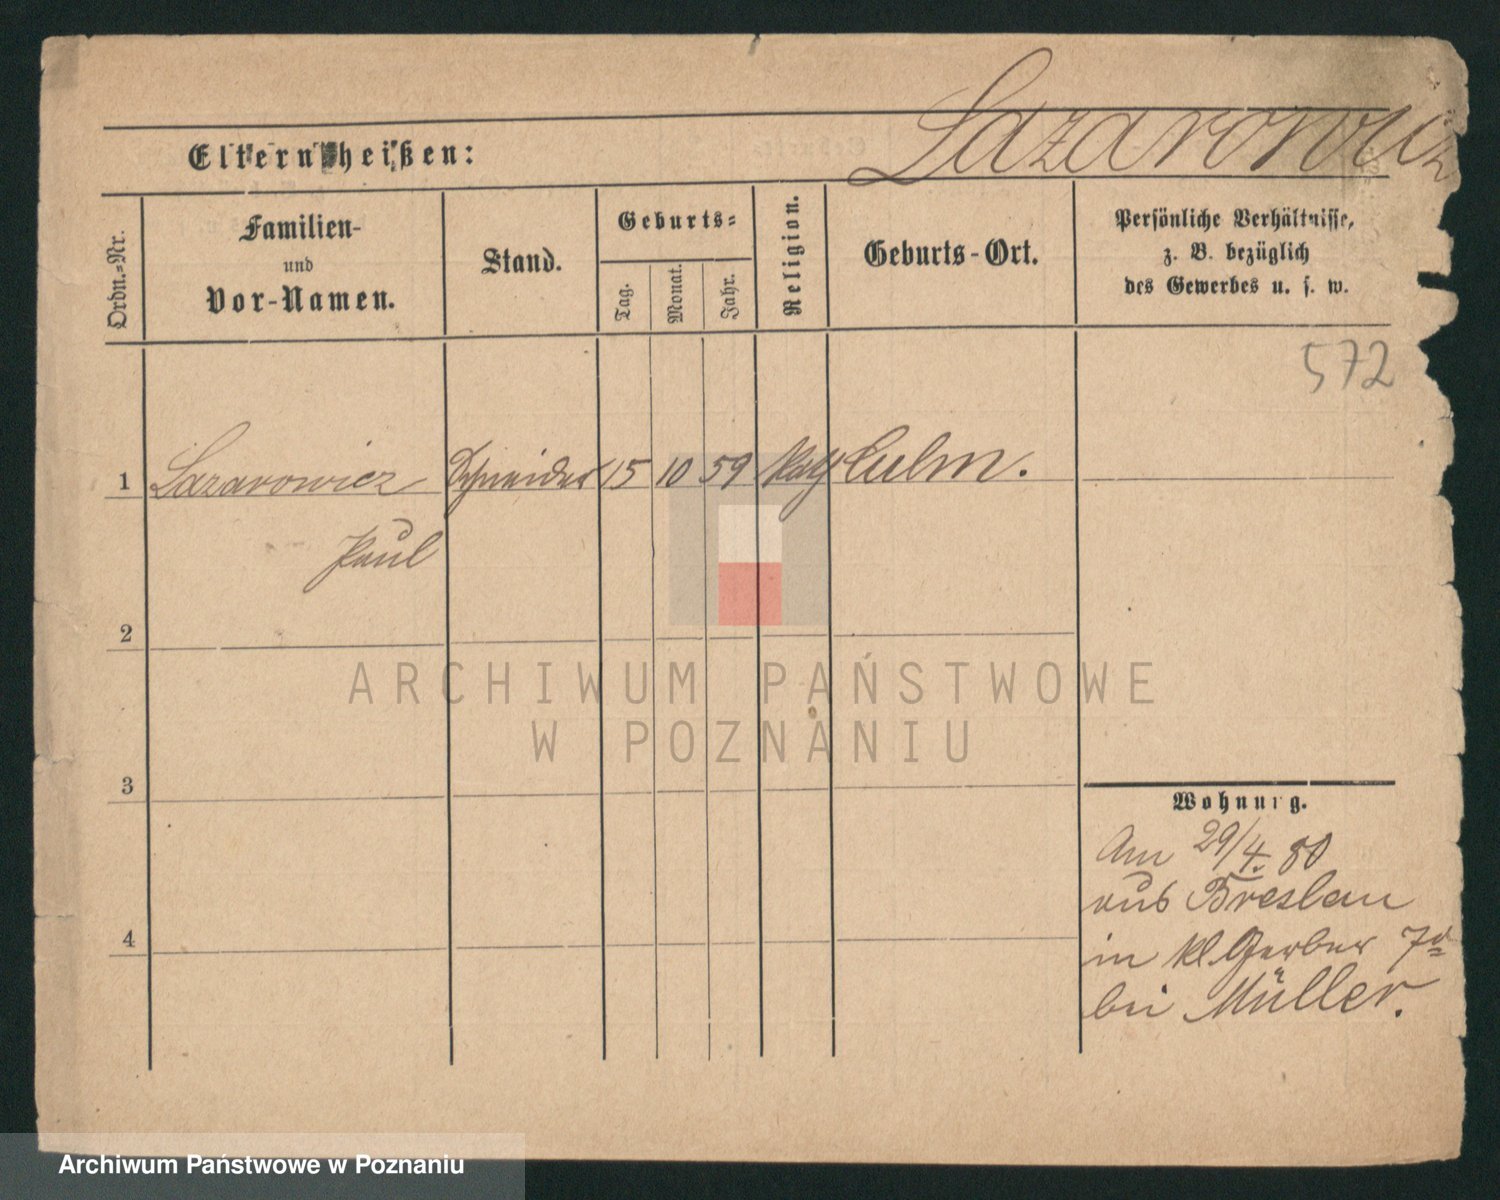 Lazarowicz
Eltern heißen:
Ordn.=Nr.
Familien-
und
Vor-Namen.
Stand.
Geburts=
Tag.
Monat.
Jahr.
Religion.
Geburts-Ort.
Persönliche Verhältnisse,
z. B. bezüglich
des Gewerbes u. s. w.
572
1 Lazarowicz Schneider 15 10 59 Kath Culm.
Paul
2
3
4
Wohnung.
Am 29/4. 80
aus Breslau
in kl. Gerber 7a
bei Müller.
ARCHIWUM PAŃSTWOWE
W POZNANIU
Archiwum Państwowe w Poznaniu